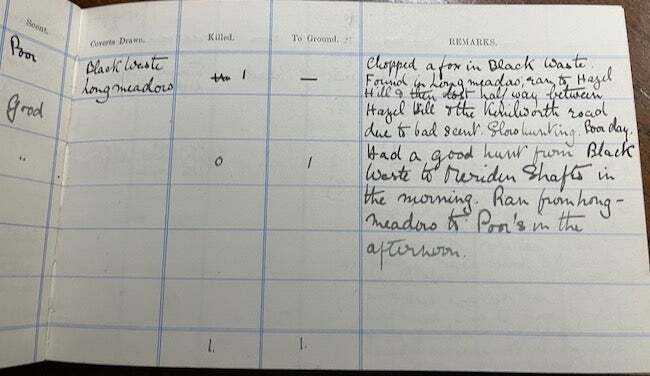 Scent. Coverts Drawn. Killed. To Ground. REMARKS.
Poor Black Waste 1 — Chopped a fox in Black Waste.
Longmeadows Found in Longmeadow, ran to Hazel
Hill & then lost half way between
Hazel Hill & the Kenilworth road
due to bad scent. Slow hunting. Poor day.
Good Had a good hunt from Black
" 0 1 Waste to Meriden Shafts in
the morning. Ran from Long-
meadow to Poor's in the
afternoon.
1. 1.